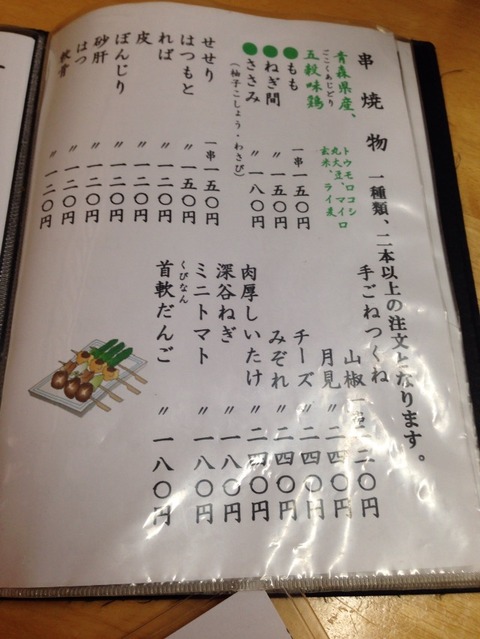 串焼物
一種類、二本以上の注文となります。
青森県産、
ごこくあじどり
五穀味鶏
トウモロコシ
丸大豆、マイロ
玄米、ライ麦
●もも 一串一五〇円
●ねぎ間 〃一五〇円
●ささみ 〃一八〇円
(柚子こしょう・わさび)
せせり 一串一五〇円
はつもと 〃一五〇円
ればー 〃一二〇円
皮 〃一二〇円
ぼんじり 〃一二〇円
砂肝 〃一二〇円
はつ 〃一二〇円
軟骨 〃一二〇円
手ごねつくね 一串二二〇円
山椒 〃二四〇円
月見 〃二四〇円
チーズ 〃二四〇円
みぞれ 〃二四〇円
肉厚しいたけ 〃二四〇円
深谷ねぎ 〃一八〇円
ミニトマト 〃一八〇円
くびなん
首軟だんご 〃一八〇円